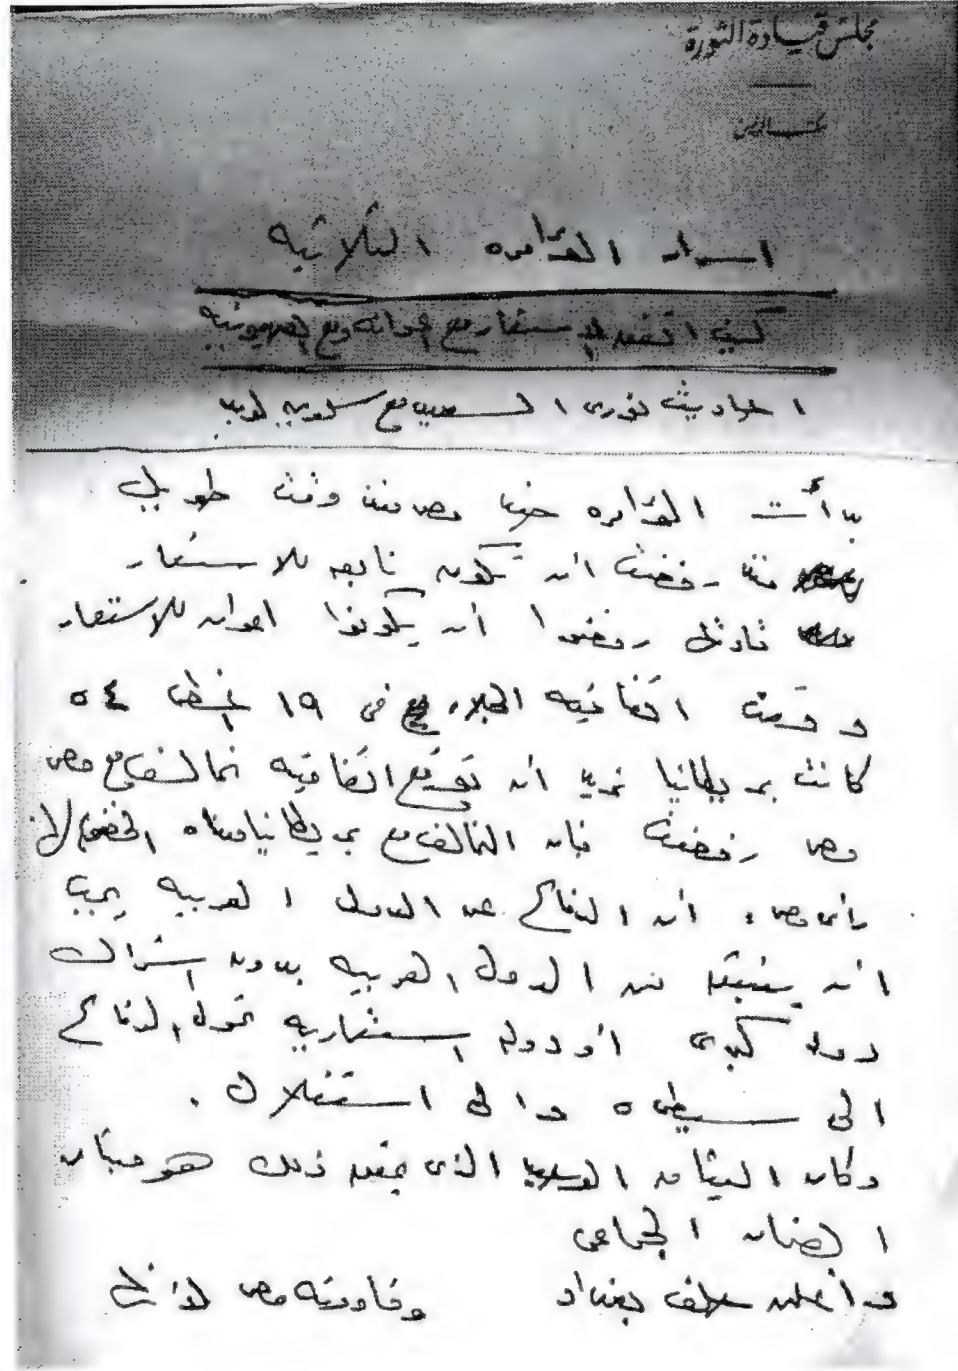 مجلس قيادة الثورة
مكتب الرئيس
اسرار المؤامره الثلاثيه
كيف اتفق الاستعمار مع اعوانه ومع الصهيونيه
احاديث نورى السعيد مع سلوين لويد
بدأت المؤامره ضد مصر منذ وقت طويل
منذ رفضت ان تكون تابعه للاستعمار
رفضوا أن يكونوا اعوان للاستعمار
وقعت اتفاقيه الجلاء فى ١٩ اغسطس ٥٤
كانت بريطانيا تريد ان توقع اتفاقيه تحالف مع مصر
مصر رفضت فان التحالف مع بريطانيا معناه الخضوع لها
رأى مصر ان الدفاع عن الدول العربيه يجب
ان ينبثق من الدول العربيه بدون اشتراك
دول كبرى أو دول استعماريه تحول الدفاع
الى سيطره والى استغلال .
وكان الميثاق الذى يحقق ذلك هو ميثاق
الضمان الجماعى
واعلن حلف بغداد وقاومته مصر